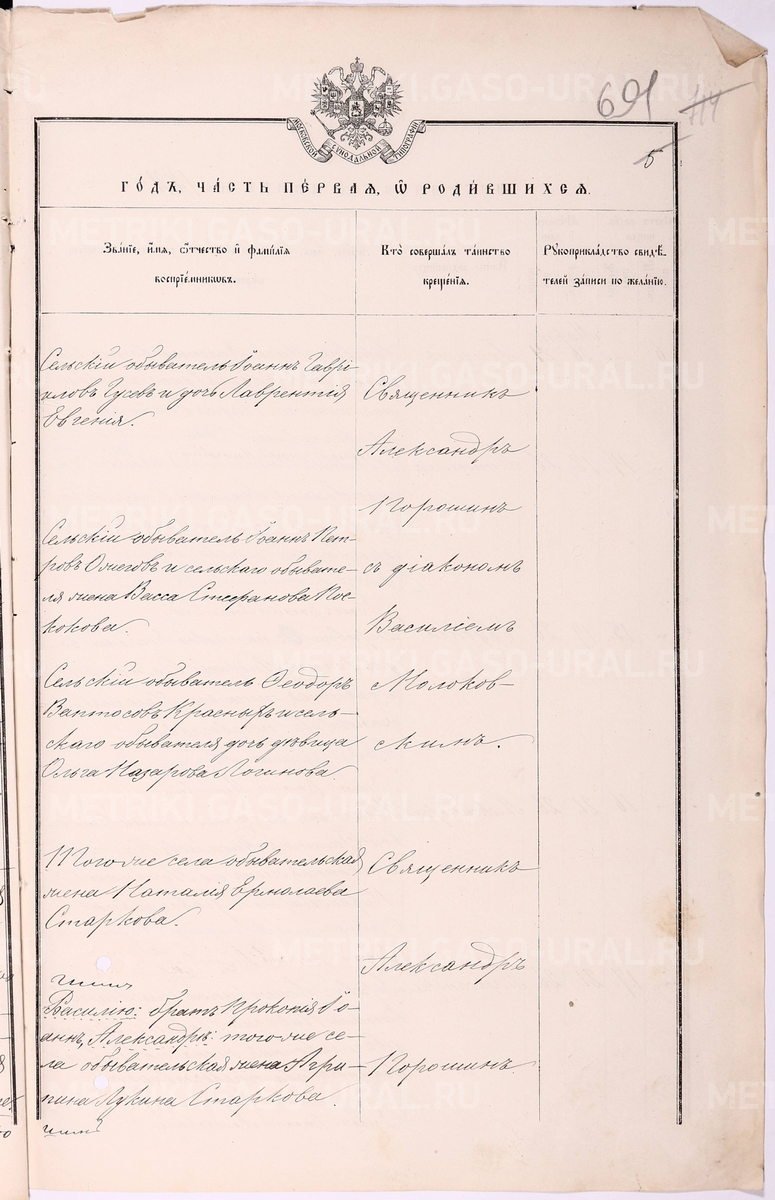 691
5
МОСКОВСКОЙ СѴНОДАЛЬНОЙ ТИПОГРАФІИ
ГО́ДЪ, ЧА́СТЬ ПЕ́РВАЯ, Ѽ РОДИ́ВШИХСЯ.
Зва́нїе, и҆́мя, ѻ҆́тчество и҆ фами́лїя
воспрїе́мникѡвъ.
Кто̀ соверша́лъ та́инство
креще́нїя.
Рꙋкоприкла́дство свидѣ́-
телей за́писи по жела́нїю.
Сельскій обыватель Іоаннъ Гаврі-
иловъ Гусевъ и дочь Лаврентія
Евгенія.
Священникъ
Александръ
Горошинъ
съ діакономъ
Василіемъ
Молоков-
скимъ.
Сельскій обыватель Іоаннъ Пет-
ровъ Ожеговъ и сельскаго обывате-
ля жена Васса Стефанова Пос-
кокова.
Сельскій обыватель Ѳеодоръ
Красныхъ и сель-
скаго обывателя дочь дѣвица
Ольга Назарова Логинова.
Того же села обывательская
жена Наталія Ермолаева
Старкова.
Священникъ
Александръ
Горошинъ
Василію: братъ Прокопія Іо-
аннъ, Александрѣ: того же се-
ла обывательская жена Агри-
пина Лукина Старкова.
METRIKI.GASO-URAL.RU